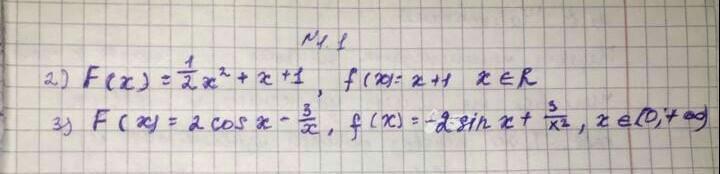 №1.1
2) F(x) = 1/2 x² + x + 1, f(x) = x + 1 x ∈ R
3) F(x) = 2 cos x - 3/x, f(x) = -2 sin x + 3/x², x ∈ (0; + ∞)